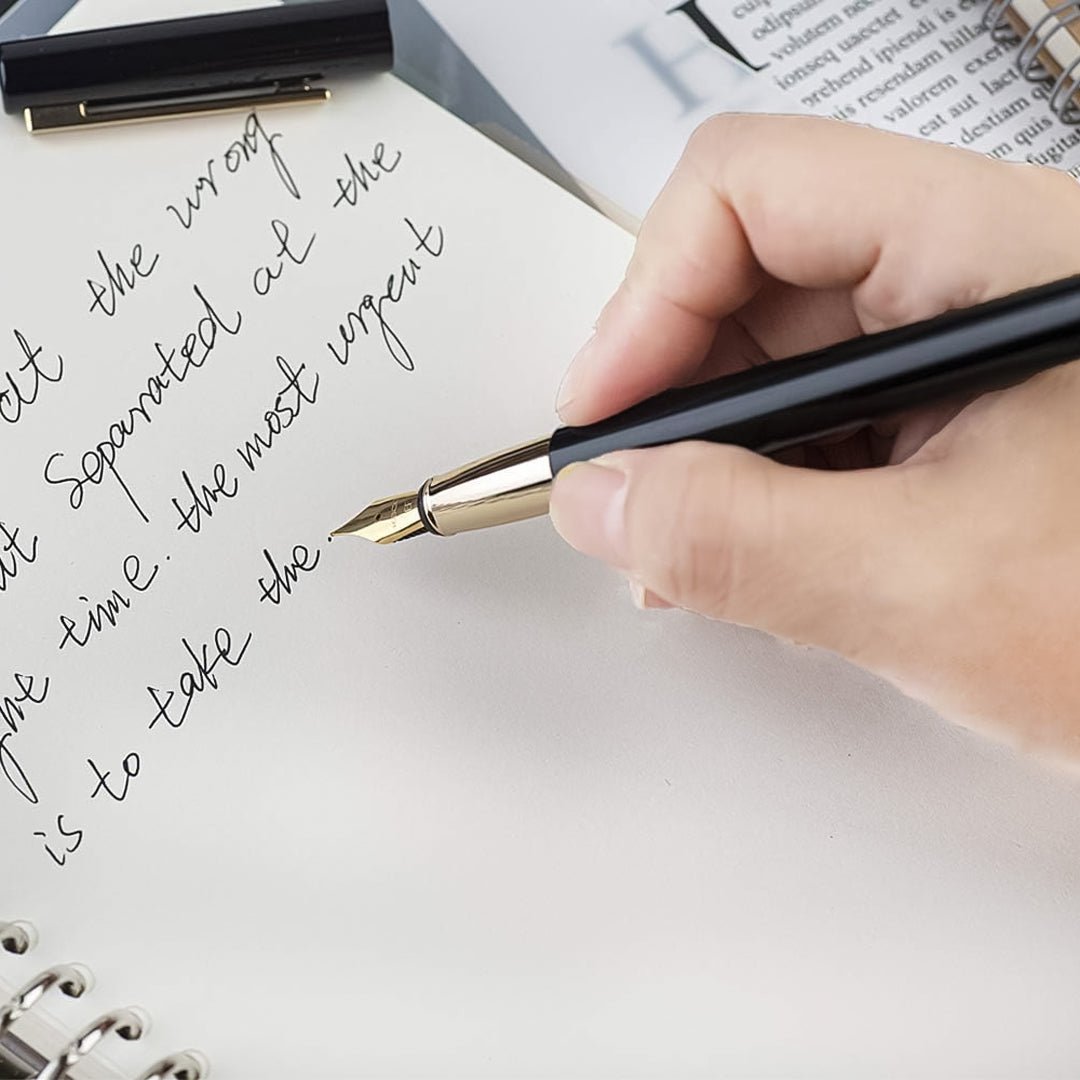 at the wrong
Separated at the
time. the most urgent
is to take the.
H
odipsu
volutem nec
ionseq uaectet e
prehend ipiendi is e
quis resendam hilla
valorem exer
eat aut lact
destiam qu
quis
fugitat